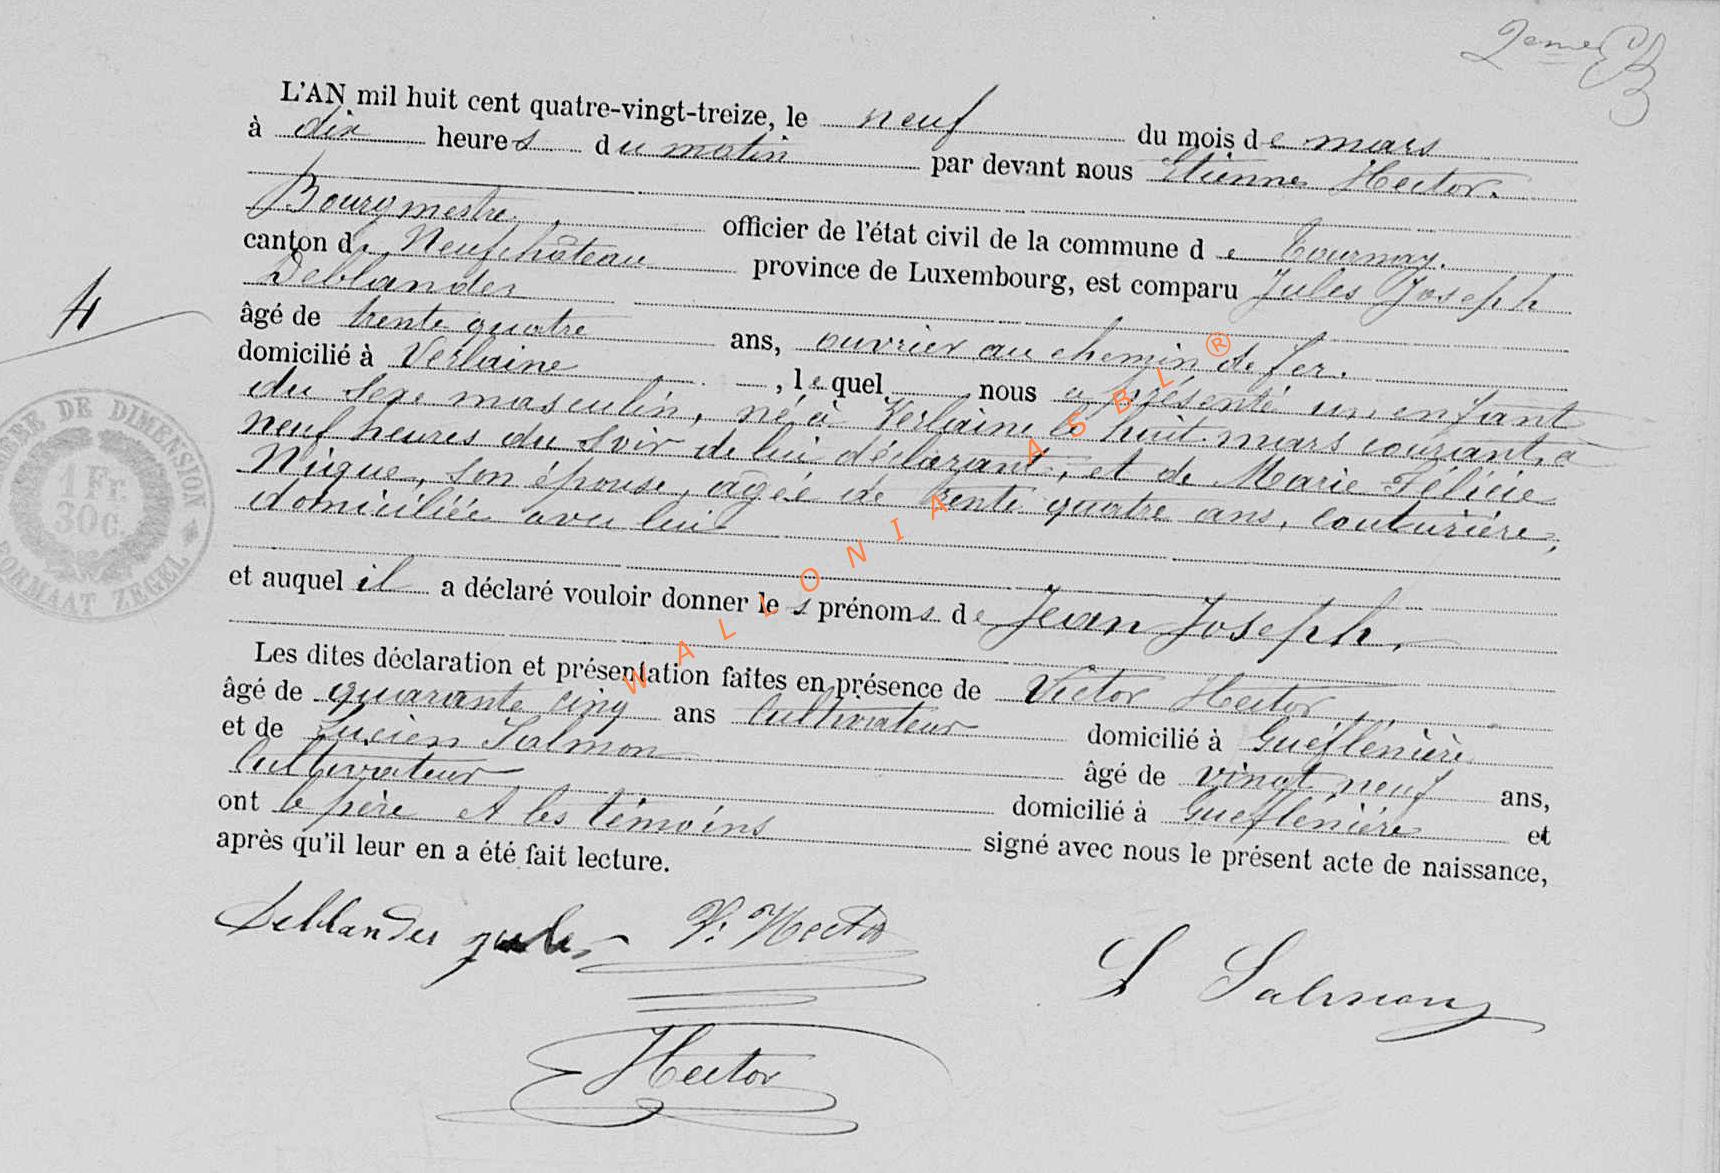 2eme
L'AN mil huit cent quatre-vingt-treize, le neuf du mois de mars
à dix heures du matin par devant nous Etienne Hector.
Bourgmestre. officier de l'état civil de la commune de Tournay.
canton de Neufchâteau province de Luxembourg, est comparu Jules Joseph
Deblander
4
âgé de trente quatre ans, ouvrier au chemin de fer.
domicilié à Verlaine, lequel nous a présenté un enfant
du sexe masculin, né à Verlaine le huit mars courant, à
neuf heures du soir de lui déclarant, et de Marie Félicie
Nicque, son épouse, agée de trente quatre ans, couturière,
domiciliée avec lui
et auquel il a déclaré vouloir donner les prénoms de Jean Joseph.
Les dites déclaration et présentation faites en présence de Victor Hector,
âgé de quarante cinq ans Cultivateur domicilié à Gueflénière
et de Lucien Salmon âgé de vingt neuf ans,
Cultivateur domicilié à Gueflénière et
ont le père et les témoins signé avec nous le présent acte de naissance,
après qu'il leur en a été fait lecture.
Deblander jules V. Hector
L Salmon
Hector
DE DIMENSION
1 Fr.
30 C.
FORMAAT ZEGEL
WALLONIA ASBL ®